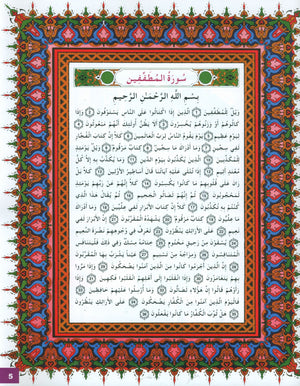 سُورَةُ الْمُطَفِّفِينَ
بِسْمِ اللَّهِ الرَّحْمَٰنِ الرَّحِيمِ
وَيْلٌ لِلْمُطَفِّفِينَ 1 الَّذِينَ إِذَا اكْتَالُوا عَلَى النَّاسِ يَسْتَوْفُونَ 2 وَإِذَا
كَالُوهُمْ أَوْ وَزَنُوهُمْ يُخْسِرُونَ 3 أَلَا يَظُنُّ أُولَئِكَ أَنَّهُمْ مَبْعُوثُونَ 4
لِيَوْمٍ عَظِيمٍ 5 يَوْمَ يَقُومُ النَّاسُ لِرَبِّ الْعَالَمِينَ 6 كَلَّا إِنَّ كِتَابَ الْفُجَّارِ
لَفِي سِجِّينٍ 7 وَمَا أَدْرَاكَ مَا سِجِّينٌ 8 كِتَابٌ مَرْقُومٌ 9 وَيْلٌ يَوْمَئِذٍ
لِلْمُكَذِّبِينَ 10 الَّذِينَ يُكَذِّبُونَ بِيَوْمِ الدِّينِ 11 وَمَا يُكَذِّبُ بِهِ إِلَّا كُلُّ
مُعْتَدٍ أَثِيمٍ 12 إِذَا تُتْلَى عَلَيْهِ آيَاتُنَا قَالَ أَسَاطِيرُ الْأَوَّلِينَ 13 كَلَّا بَلْ
رَانَ عَلَى قُلُوبِهِمْ مَا كَانُوا يَكْسِبُونَ 14 كَلَّا إِنَّهُمْ عَنْ رَبِّهِمْ يَوْمَئِذٍ
لَمَحْجُوبُونَ 15 ثُمَّ إِنَّهُمْ لَصَالُو الْجَحِيمِ 16 ثُمَّ يُقَالُ هَذَا الَّذِي
كُنْتُمْ بِهِ تُكَذِّبُونَ 17 كَلَّا إِنَّ كِتَابَ الْأَبْرَارِ لَفِي عِلِّيِّينَ 18 وَمَا أَدْرَاكَ
مَا عِلِّيُّونَ 19 كِتَابٌ مَرْقُومٌ 20 يَشْهَدُهُ الْمُقَرَّبُونَ 21 إِنَّ الْأَبْرَارَ لَفِي
نَعِيمٍ 22 عَلَى الْأَرَائِكِ يَنْظُرُونَ 23 تَعْرِفُ فِي وُجُوهِهِمْ نَضْرَةَ النَّعِيمِ
24 يُسْقَوْنَ مِنْ رَحِيقٍ مَخْتُومٍ 25 خِتَامُهُ مِسْكٌ وَفِي ذَلِكَ فَلْيَتَنَافَسِ
الْمُتَنَافِسُونَ 26 وَمِزَاجُهُ مِنْ تَسْنِيمٍ 27 عَيْنًا يَشْرَبُ بِهَا الْمُقَرَّبُونَ
28 إِنَّ الَّذِينَ أَجْرَمُوا كَانُوا مِنَ الَّذِينَ آمَنُوا يَضْحَكُونَ 29 وَإِذَا مَرُّوا
بِهِمْ يَتَغَامَزُونَ 30 وَإِذَا انْقَلَبُوا إِلَى أَهْلِهِمُ انْقَلَبُوا فَكِهِينَ 31 وَإِذَا
رَأَوْهُمْ قَالُوا إِنَّ هَؤُلَاءِ لَضَالُّونَ 32 وَمَا أُرْسِلُوا عَلَيْهِمْ حَافِظِينَ 33
فَالْيَوْمَ الَّذِينَ آمَنُوا مِنَ الْكُفَّارِ يَضْحَكُونَ 34 عَلَى الْأَرَائِكِ يَنْظُرُونَ
35 هَلْ ثُوِّبَ الْكُفَّارُ مَا كَانُوا يَفْعَلُونَ 36
5